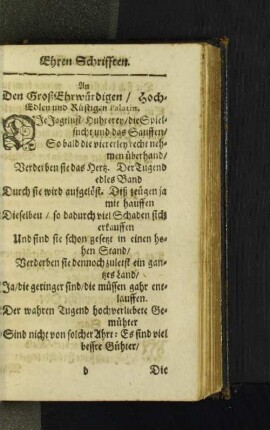 Ehren Schrifften.
An
Den GroßEhrwürdigen / Hoch-
Edlen und Rüstigen Palatin.
DIe Jagtlust Huhrerey / die Spiel-
sucht und das Sauffen /
So bald die vier erley recht neh-
men überhand /
Verderben sie das Hertz. Der Tugend
edles Band
Durch sie wird aufgelöst. Diß zeügen ja
mit hauffen
Dieselben / so dadurch viel Schaden sich
erkauffen
Und sind sie schon gesetzt in einen ho-
hen Stand /
Verderben sie dennoch zuletst ein gan-
tzes Land /
Ja / die geringer sind / die müssen gahr ent-
lauffen.
Der wahren Tugend hochverliebete Ge-
mühter
Sind nicht von solcher Ahrt: Es sind viel
bessre Gühter /
b
Die